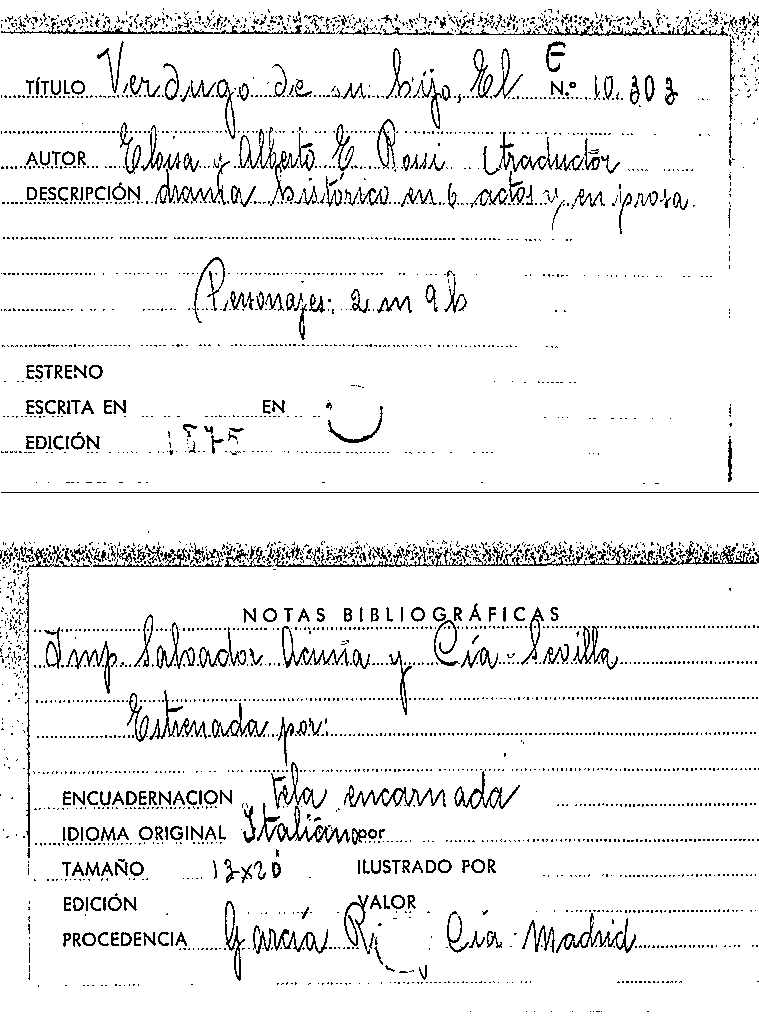 E
TÍTULO Verdugo de su hijo, El N.º 10.303
AUTOR Eloisa y Alberto E. Rossi (traductor
DESCRIPCIÓN drama histórico en 6 actos y en prosa.
Personajes: 2 m 9 h
ESTRENO
ESCRITA EN EN
EDICIÓN 1875
NOTAS BIBLIOGRÁFICAS
Imp. Salvador Acuña y Cía - Sevilla
Estrenada por:
ENCUADERNACION tela encarnada
IDIOMA ORIGINAL Italiano por
TAMAÑO 13x20 ILUSTRADO POR
EDICIÓN VALOR
PROCEDENCIA García Cía - Madrid